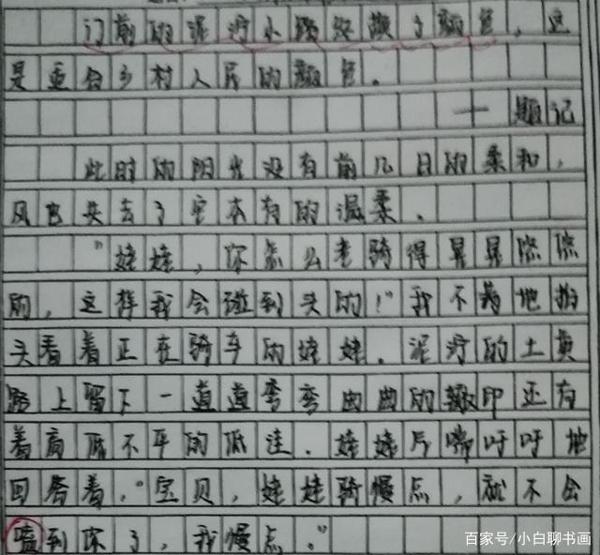 门前的泥泞小路终换了颜色，这
是更合乡村人民的颜色。
——题记
此时的阳光没有前几日的柔和，
风也失去了它本有的温柔。
"娃娃，你怎么老骑得晃晃悠悠
的，这样我会碰到头的！"我不满地抬
头看着正在骑车的娃娃。泥泞的土黄
路上留下一道道弯弯曲曲的辙印还有
着高低不平的低洼。娃娃气喘吁吁地
回答着，"宝贝，娃娃骑慢点，就不会
磕到你了，我慢点。"
百家号/小白聊书画